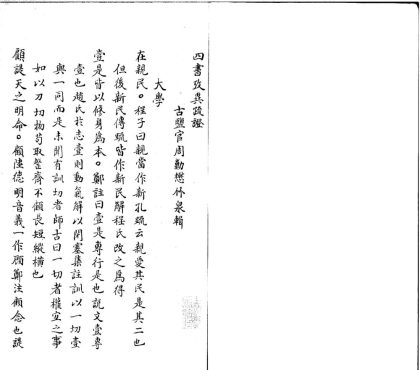 四書攷異疏證
古鹽官周勤懋竹泉輯
大學
在親民。程子曰親當作新孔疏云親愛其民是其二也
但後新民傳疏皆作新民解程氏改之為得
壹是皆以修身為本。鄭註曰壹是專行是也説文壹專
壹也趙氏於志壹則動氣解以閉塞集註訓以一切壹
與一同而是未聞有訓切者師古曰一切者權宜之事
如以刀切物苟取整齊不顧長短縱橫也
顧諟天之明命。顧陸德明音義一作顾鄭注顧念也諟